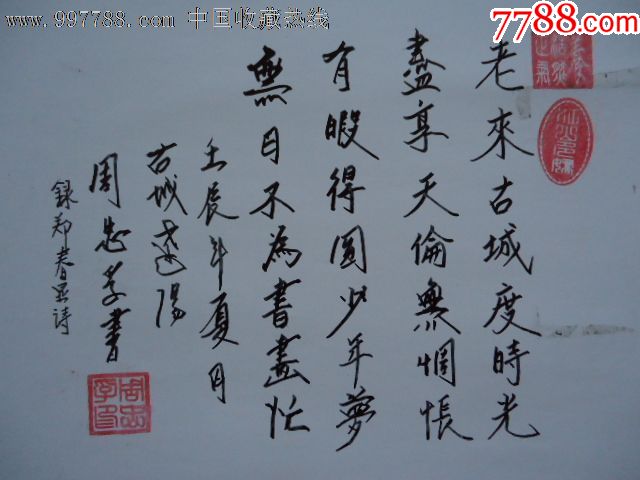 www.997788.com 中国收藏热线
7788.com
老來古城度時光
盡享天倫無惆悵
有暇得圓少年夢
無日不為書畫忙
壬辰年夏月
古城遼陽
周忠孝書
錄鄭春 詩
周忠孝印